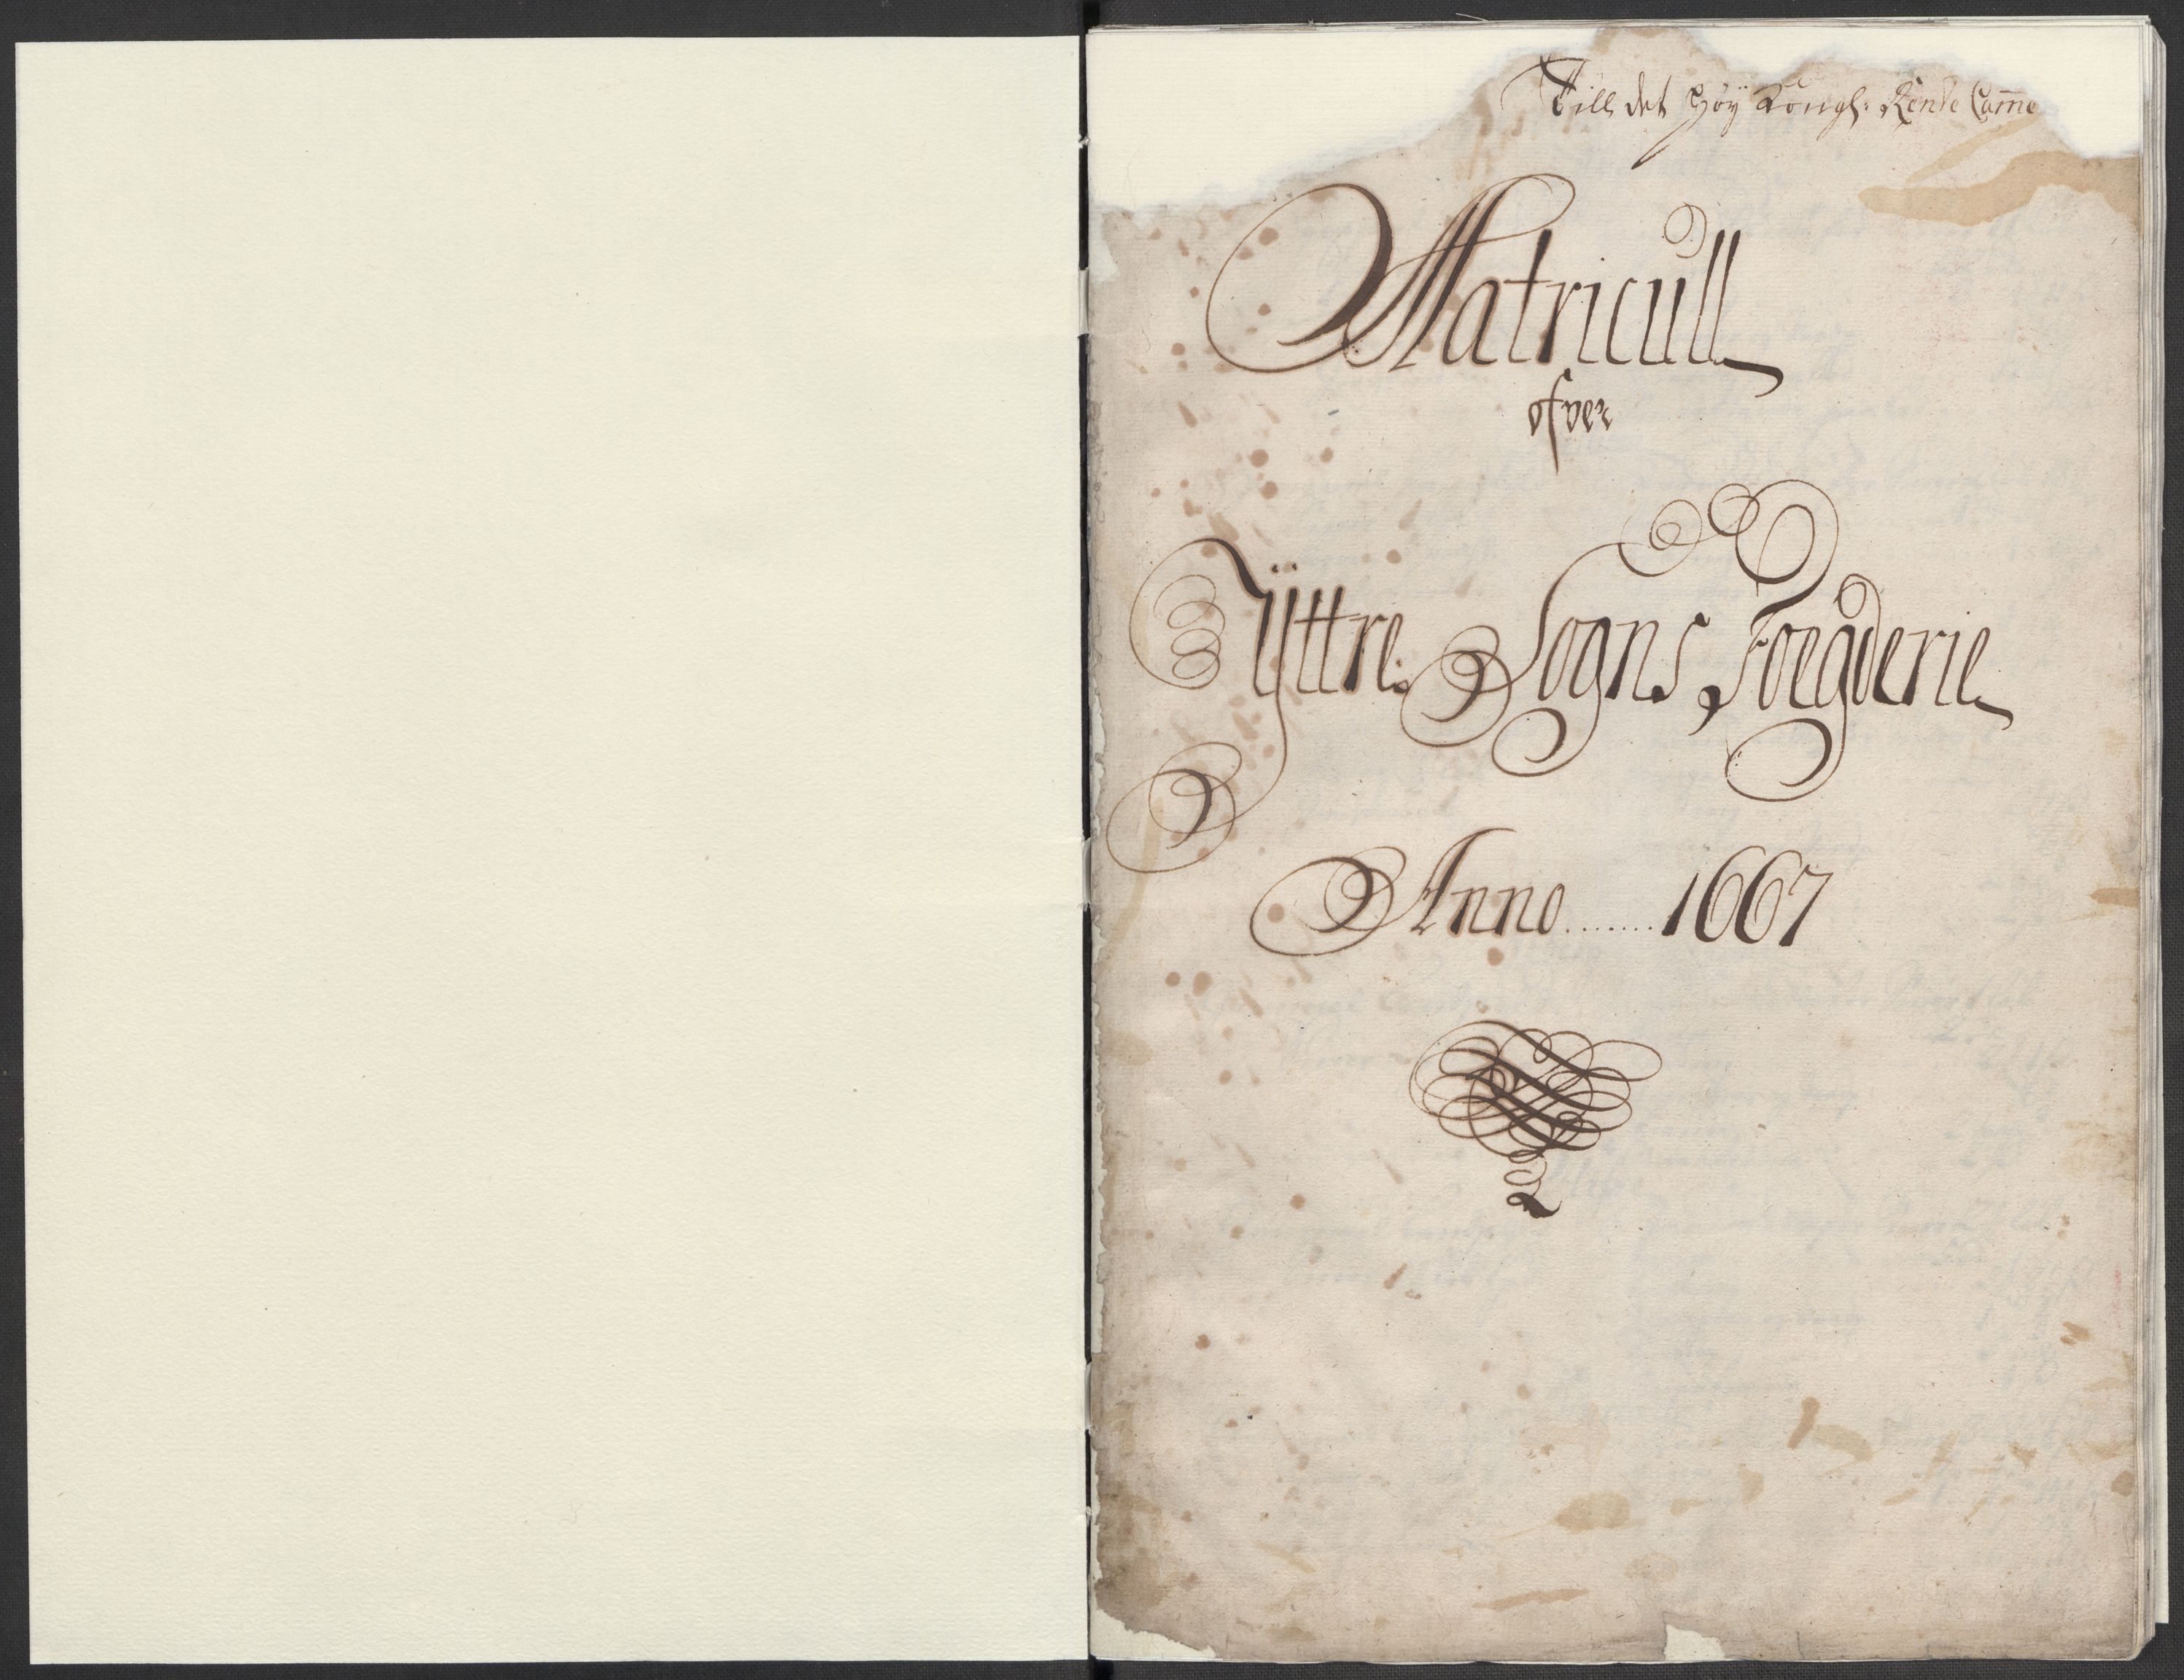 Till det Höy Kongl: Rente Cam̄e
Matricull
ofver
Ÿttre Sogns Foegderie
Anno ....... 1667